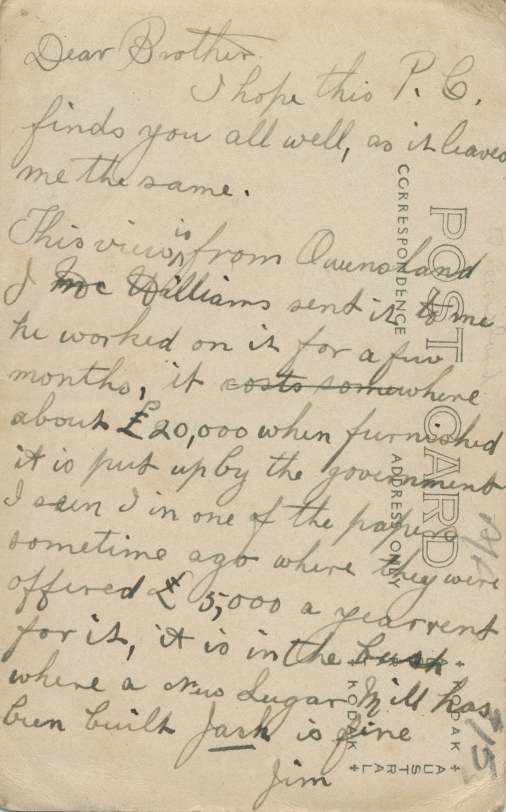 Dear Brother
I hope this P. C.
finds you all well, as it leaves
me the same.
This view is from Queensland
J McWilliams sent it to me
he worked on it for a few
months, it costs somewhere
about £20,000 when furnished
it is put up by the government
I seen I in one of the papers
sometime ago where they were
offered £ 5,000 a year rent
for it, it is in the bush
where a new Sugar Mill has
been built Jack is fine
Jim
POST CARD
CORRESPONDENCE
ADDRESS ONLY
KODAK
AUSTRAL
KODAK